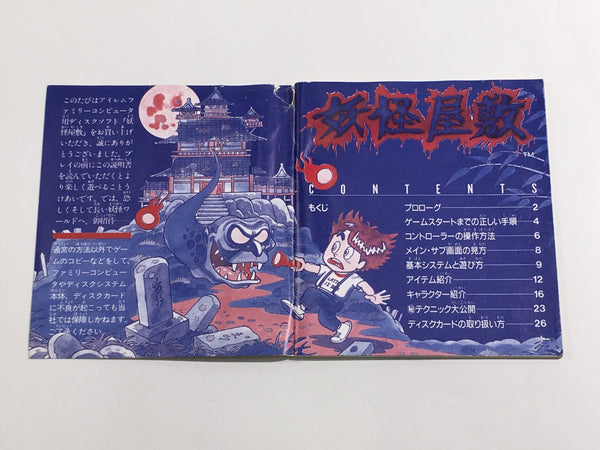 このたびはアイレムフ
ァミリーコンピュータ
用ディスクソフト「妖
怪屋敷」をお買い上げ
いただき、誠にありが
とうございました。プ
レイの前にこの説明書
を読んでいただくとよ
り楽しく遊べることう
けあいです。では、恐
しくそして長い妖怪ワ
ールドへ、
通常の方法以外でゲー
ムのコピーなどをして、
ファミリーコンピュー
タやディスクシステム
本体、ディスクカード
に不良が起こっても当
社では保障しかねます。
ご注意ください。
妖怪屋敷
TM
CONTENTS
もくじ
プロローグ 2
ゲームスタートまでの正しい手順 4
コントローラーの操作方法 6
メイン・サブ画面の見方 8
基本システムと遊び方 9
アイテム紹介 12
キャラクター紹介 16
㊙テクニック大公開 23
ディスクカードの取り扱い方 26